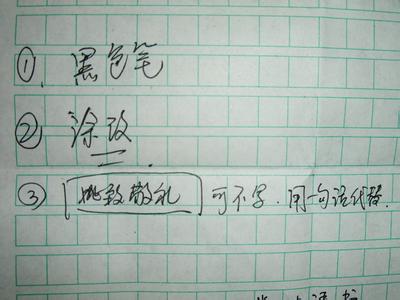 ① 黑色笔
② 涂改.
③ 此致敬礼 可不写.用一句话代替.